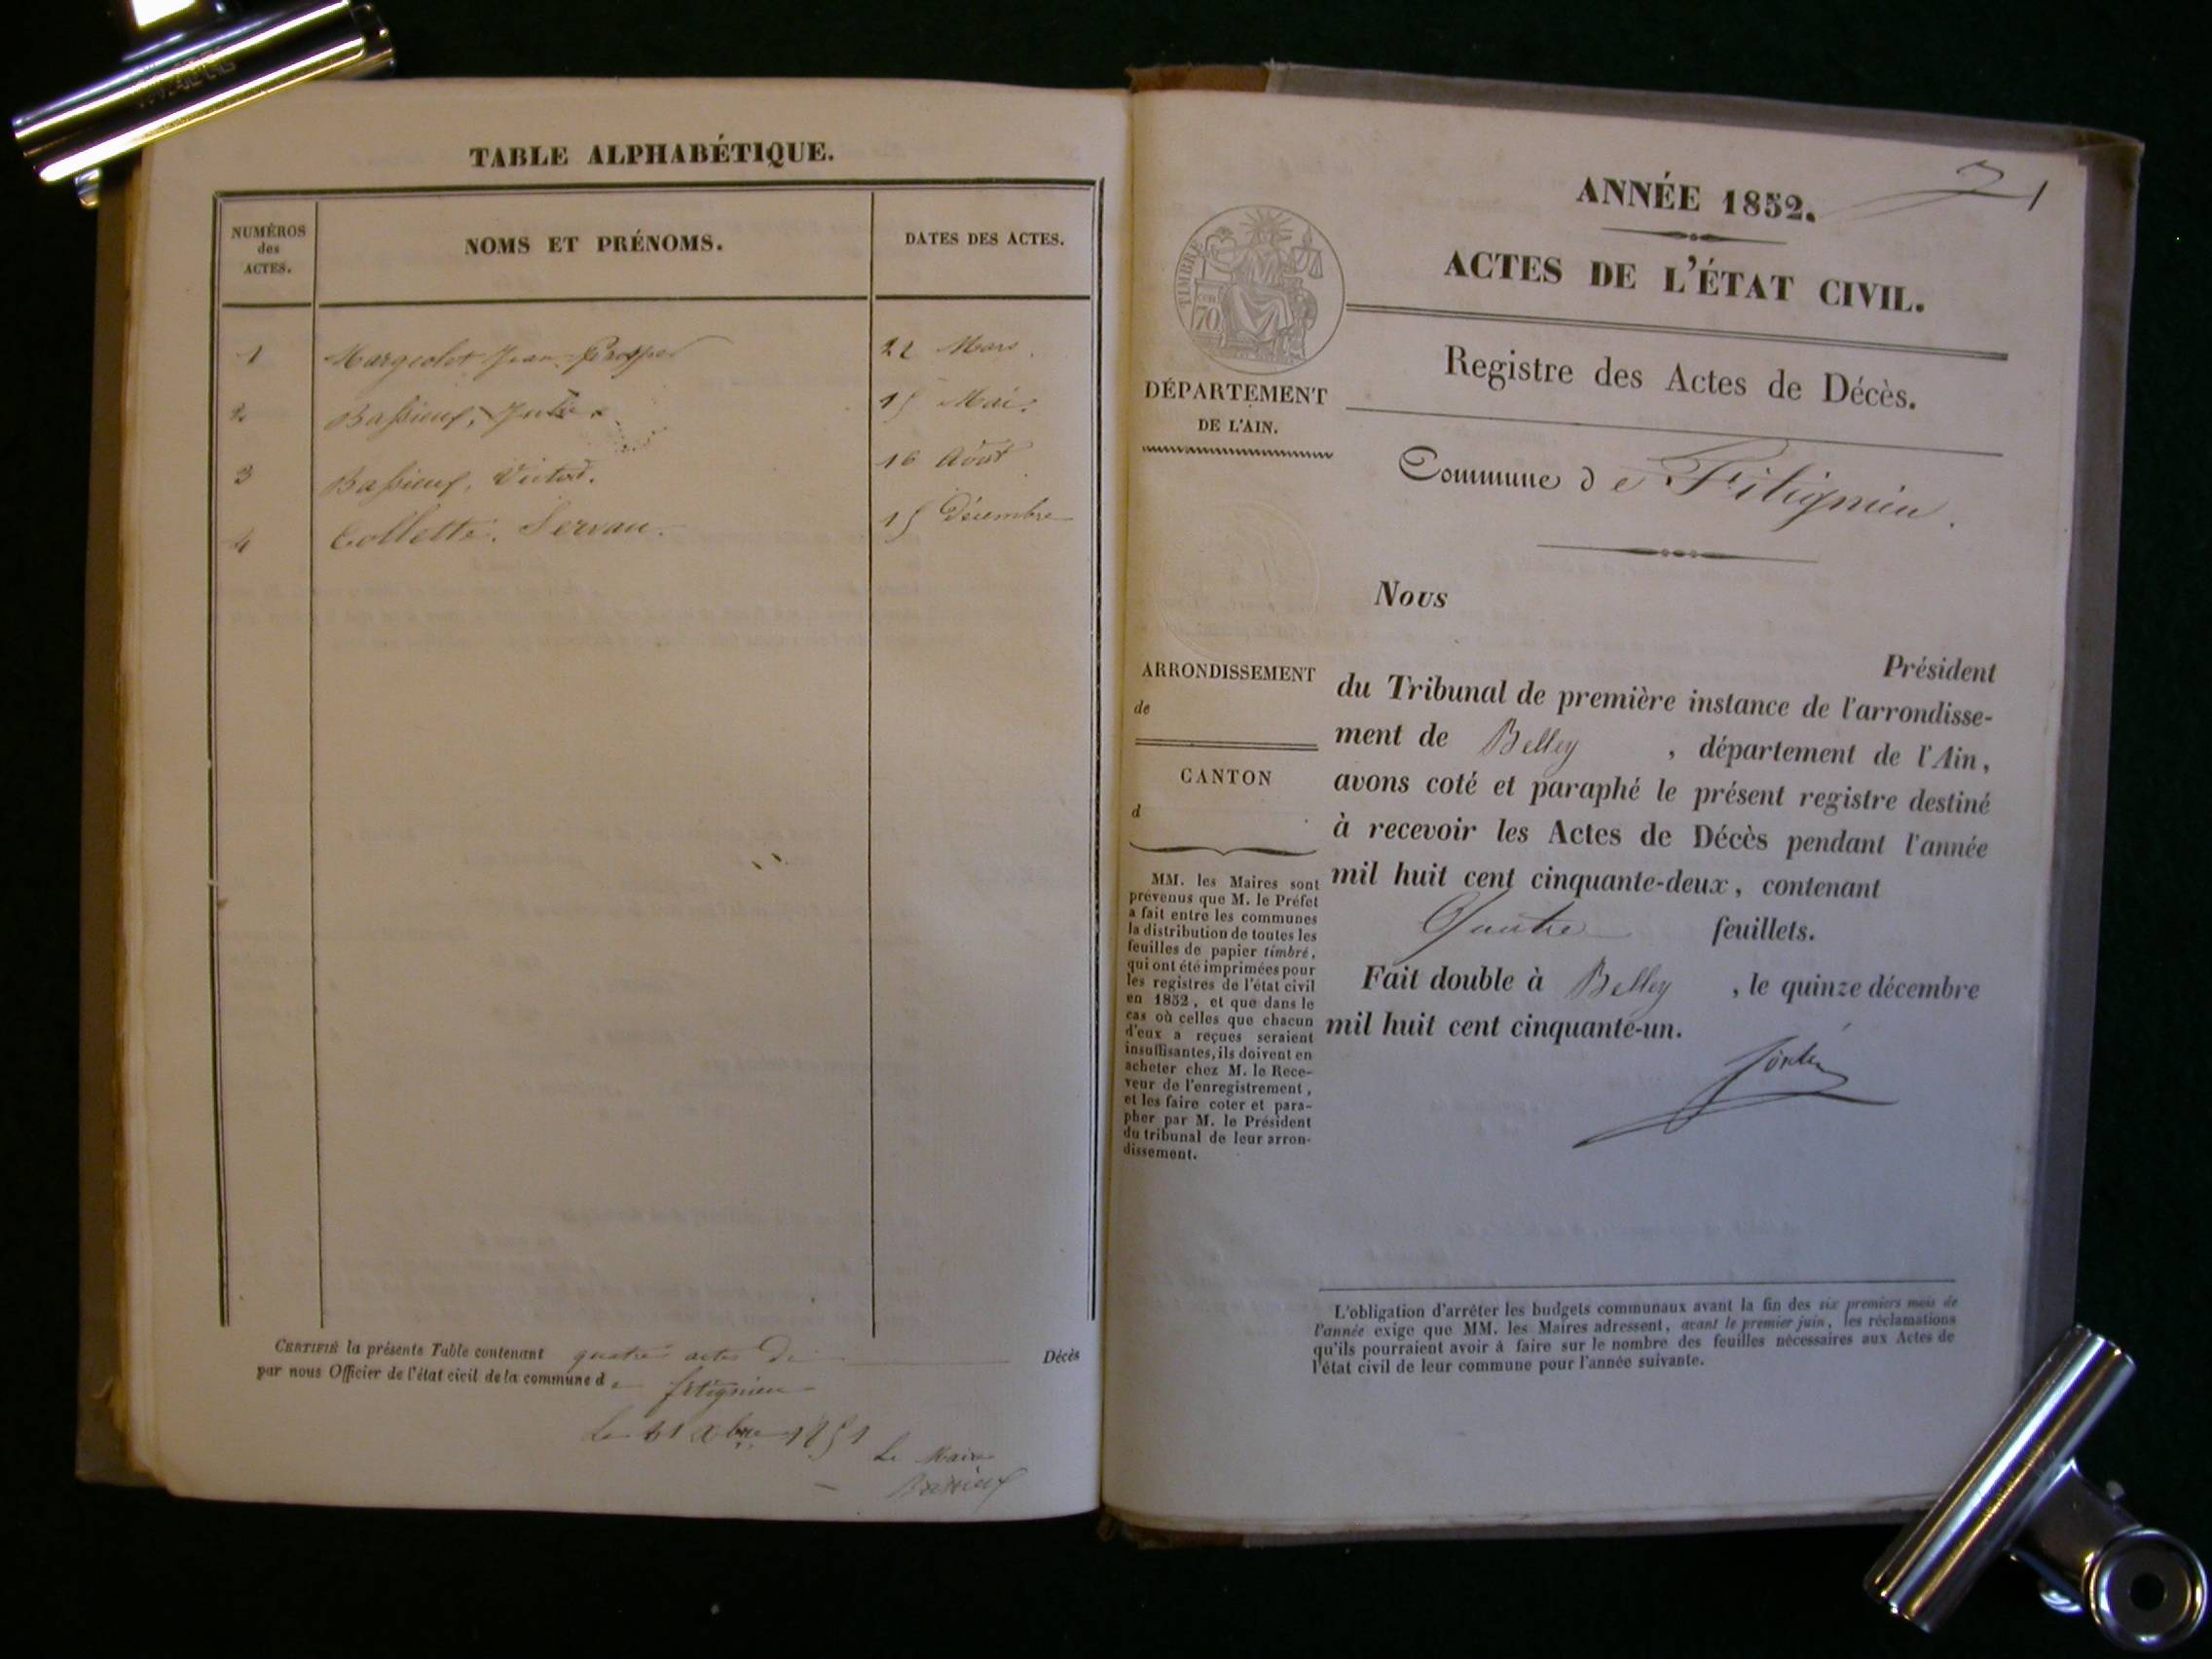 TABLE ALPHABÉTIQUE.
NUMÉROS
des
ACTES.
NOMS ET PRÉNOMS.
DATES DES ACTES.
1 Margeolet Jean-Prosper 22 Mars.
2 Baßieux, 15 Mai.
3 Baßieux, Victor. 16 Août
4 Collette. Servan. 15 Décembre
CERTIFIÉ la présente Table contenant quatre actes de Décès
par nous Officier de l'état civil de la commune de fitignieu
Le 31 Xbre 1851
Le Maire
Bassieux
ANNÉE 1852.
1
ACTES DE L'ÉTAT CIVIL.
TIMBRE
70
cen
DÉPARTEMENT
DE L'AIN.
Registre des Actes de Décès.
Commune de Fitignieu.
Nous
Président
du Tribunal de première instance de l'arrondisse-
ment de Belley , département de l'Ain,
avons coté et paraphé le présent registre destiné
à recevoir les Actes de Décès pendant l'année
mil huit cent cinquante-deux, contenant
Quatre feuillets.
Fait double à Belley , le quinze décembre
mil huit cent cinquante-un.
ARRONDISSEMENT
de
CANTON
d
MM. les Maires sont
prévenus que M. le Préfet
a fait entre les communes
la distribution de toutes les
feuilles de papier timbré,
qui ont été imprimées pour
les registres de l'état civil
en 1852, et que dans le
cas où celles que chacun
d'eux a reçues seraient
insuffisantes, ils doivent en
acheter chez M. le Rece-
veur de l'enregistrement,
et les faire coter et para-
pher par M. le Président
du tribunal de leur arron-
dissement.
L'obligation d'arrêter les budgets communaux avant la fin des six premiers mois de
l'année exige que MM. les Maires adressent, avant le premier juin, les réclamations
qu'ils pourraient avoir à faire sur le nombre des feuilles nécessaires aux Actes de
l'état civil de leur commune pour l'année suivante.